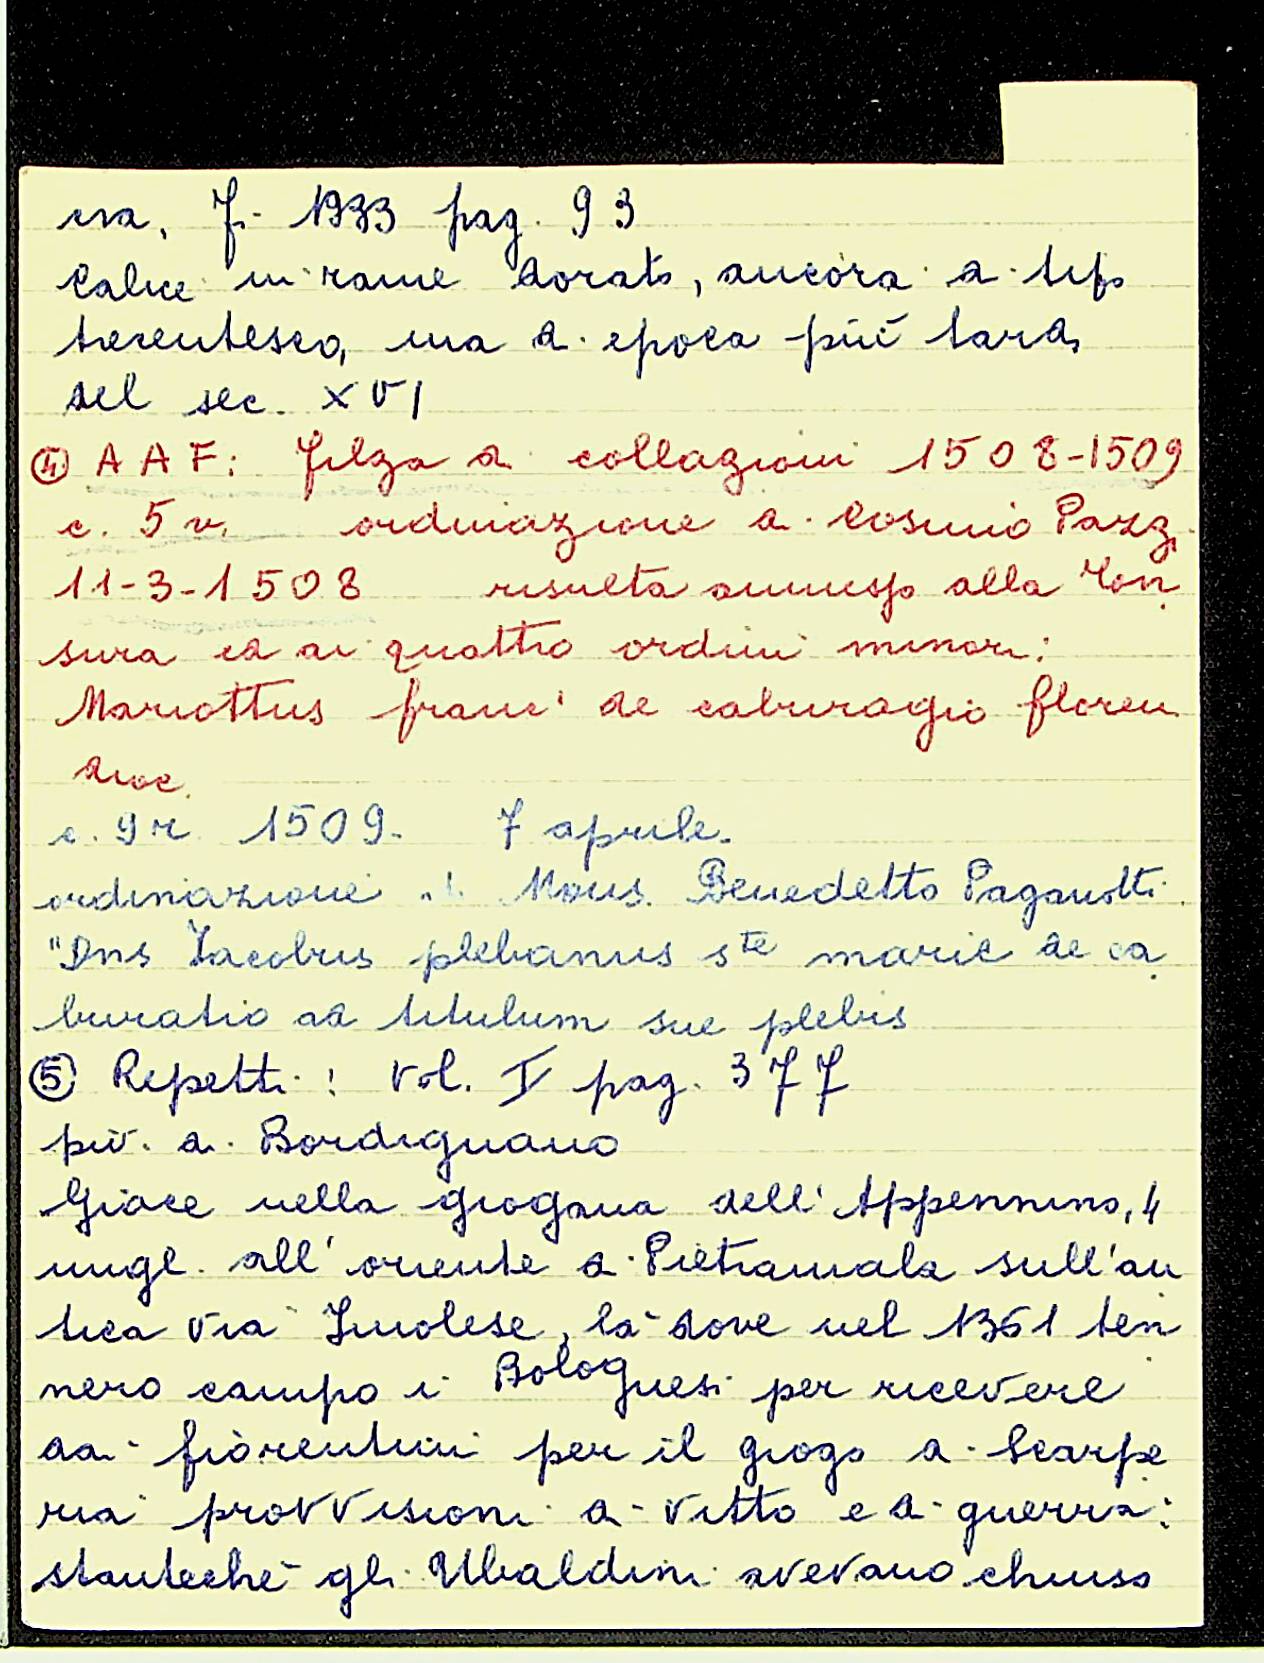 esa, F. 1933 pag. 93
Calice in rame dorato, ancora di tipo
trecentesco, ma di epoca più tarda,
del sec. XVI
④ AAF: Filza di collazioni 1508-1509
c. 5 v. ordinazione di Cosimo Pazzi
11-3-1508 risulta ammesso alla Ton
sura ed ai quattro ordini minori:
Mariottus franc' de caburagio floren.
dioc.
c. 9 r. 1509. 7 aprile.
ordinazione di Mons. Benedetto Paganotti.
"Dns Iacobus plebanus ste marie de ca
buratio ad titulum sue plebis
⑤ Repetti: Vol. I pag. 377
piv. di Bordignano
Giace nella giogana dell'Appennino, 4
migl. all'oriente di Pietramala sull'an
tica via Imolese, là dove nel 1361 ten
nero campo i Bolognesi per ricevere
dai fiorentini per il giogo di Scarpe
ria provvisioni di vitto e di guerra:
stanteché gli Ubaldini avevano chiuso